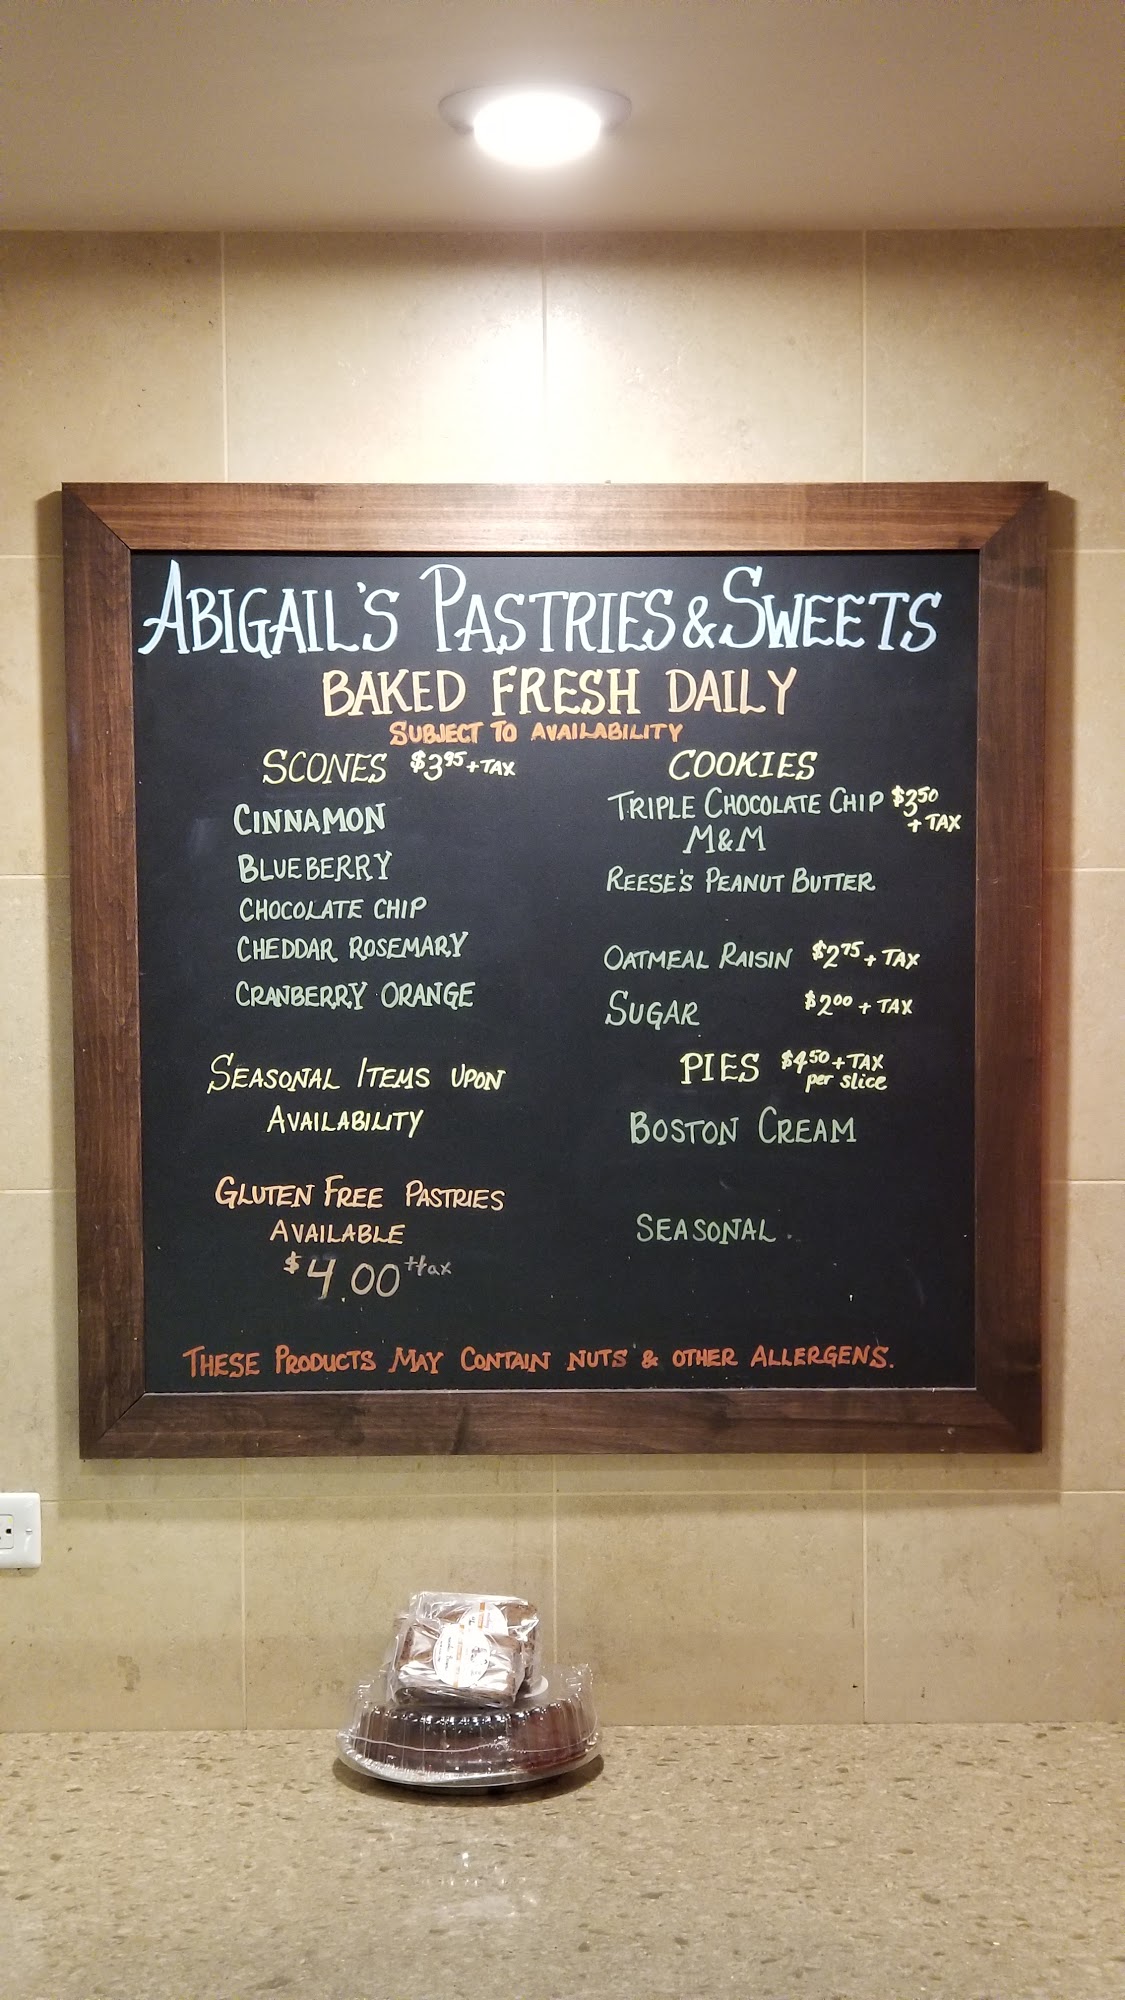 ABIGAIL'S PASTRIES & SWEETS
BAKED FRESH DAILY
SUBJECT TO AVAILABILITY
SCONES $3.95 + TAX
CINNAMON
BLUEBERRY
CHOCOLATE CHIP
CHEDDAR ROSEMARY
CRANBERRY ORANGE
SEASONAL ITEMS UPON
AVAILABILITY
GLUTEN FREE PASTRIES
AVAILABLE
$4.00 +tax
COOKIES
TRIPLE CHOCOLATE CHIP $3.50
+ TAX
M&M
REESE'S PEANUT BUTTER
OATMEAL RAISIN $2.75 + TAX
SUGAR $2.00 + TAX
PIES $4.50 + TAX
per slice
BOSTON CREAM
SEASONAL
THESE PRODUCTS MAY CONTAIN NUTS & OTHER ALLERGENS.